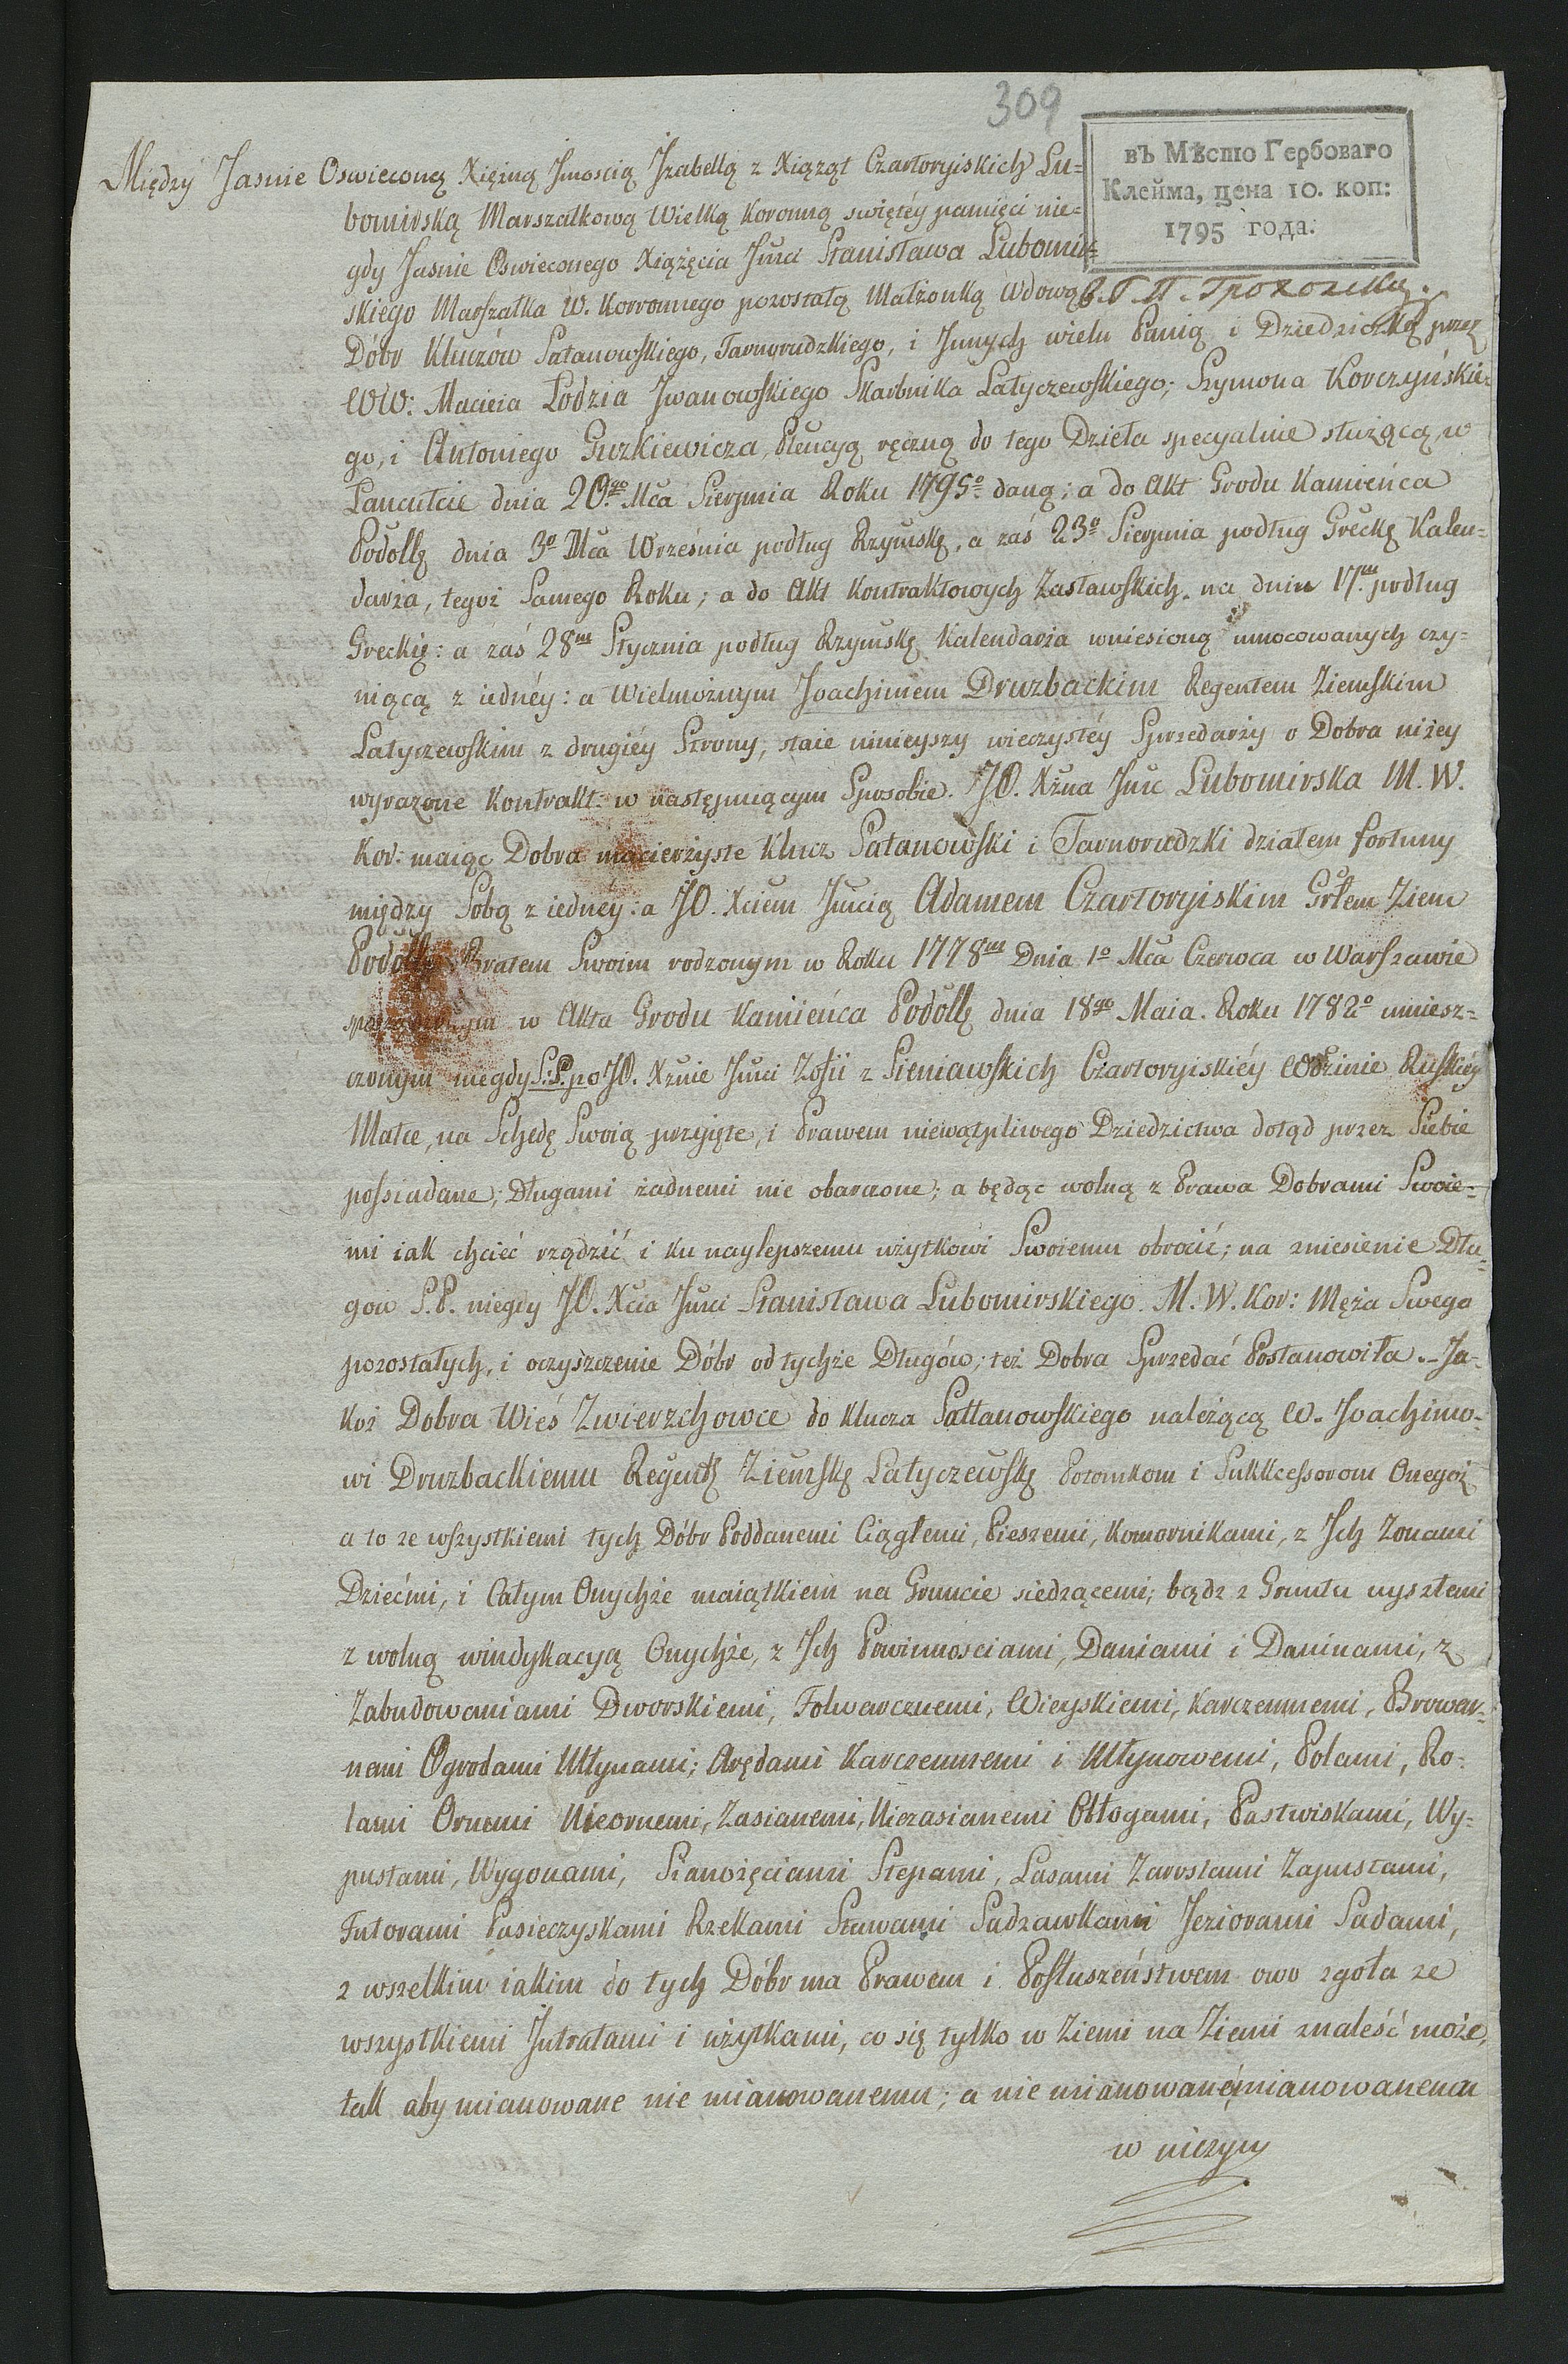 309
въ Мѣсто Гербоваго
Клейма, цена 10. коп:
1795 года.
Między Jasnie Oswieconą Xiężną Jmoscią Jzabellą z Xiąząt Czartoryiskich Lu-
bomirską Marszałkową Wielką Koronną swiętéy pamięci nie-
gdy Jasnie Oswieconego Xiążęcia Jmci Stanisława Lubomir-
skiego Marszałka W. Korronnego pozostałą Małżonką Wdową
Dóbr Kluczów Satanowskiego, Tarnorudzkiego, i Jnnych wielu Panią i Dziedziczką przez
WW: Macieia Łodzia Jwanowskiego Skarbnika Latyczewskiego; Szymona Korczyńskie-
go, i Antoniego Guzkiewicza, Plencyą ręczną do tego Dzieła specyalnie służącą, w
Łancutcie dnia 20go Mca Sierpnia Roku 1795o daną; a do Akt Grodu Kamieńca
Podollę dnia 3o Mca Września podług Rzymskę, a zaś 23o Sierpnia podług Greckę Kalen-
darża, tegoż Samego Roku; a do Akt Kontraktowych Zasławskich na dniu 17m podług
Greckię: a zaś 28m Stycznia podług Rzymskę Kalendarża wniesioną umocowanych czy-
niącą z iednéy: a Wielmożnym Joachimem Druzbackim Regentem Ziemskim
Latyczewskim z drugiéy Strony, staie ninieyszy wieczystéy Sprzedarży o Dobra niżey
wyrazone Kontrakt w następuiącym Sposobie. JO. Xżna Jmc Lubomirska M. W.
Kor: maiąc Dobra macierżyste Klucz Satanowski i Tarnorudzki działem fortuny
między Sobą z iednéy: a JO. Xciem Jmcią Adamem Czartoryiskim Grłem Ziem
Podollę Bratem Swoim rodzonym w Roku 1778m Dnia 1o Mca Czerwca w Warszawie
w Akta Grodu Kamieńca Podollę dnia 18go Maia Roku 1782o umiesz-
czonym niegdy S:P. po JO. Xżnie Jmci Zofii z Sieniawskich Czartoryiskiéy Wdzinie Ruskiéy
Matce, na Schedę Swoią przyięte, i Prawem niewątpliwego Dziedzictwa dotąd przez Siebie
possiadane; Długami żadnemi nie obarczone; a będąc wolną z Prawa Dobrami Swoie-
mi iak chcieć rządzić i ku naylepszemu użytkowi Swoiemu obrocić; na zniesienie Dłu-
gow S.P. niegdy JO. Xcia Jmci Stanisława Lubomirskiego. M. W. Kor: Męża Swego
pozostałych, i oczyszczenie Dóbr od tychże Długów; też Dobra Sprzedać Postanowiła. Ja-
koż Dobra Wieś Zwierzchowce do Klucza Sattanowskiego należącą W. Joachimo-
wi Druzbackiemu Regentę Ziemskę Latyczewskę Potomkom i Sukkcessorom Onegoż
a to ze wszystkiemi tych Dóbr Poddanemi Ciągłemi, Pieszemi, Komornikami, z Jch Zonami
Dziećmi, i Całym Onychże maiątkiem na Gruncie siedzącemi; bądz z Gruntu uyszłemi
z wolną windykacyą Onychże, z Jch Powinnosciami, Daniami i Daninami, z
Zabudowaniami Dworskiemi, Folwarcznemi, Wieyskiemi, Karczemnemi, Browar-
nemi Ogrodami Młynami; Arędami Karczemnemi i Młynowemi, Polami, Ro-
lami Ornemi Nieornemi, Zasianemi, Niezasianemi Obłogami, Pastwiskami, Wy-
pustami, Wygonami, Sianożęciami Stepami, Lasami Zarostami Zapustami,
Futorami Pasieczyskami Rzekami Stawami Sadzawkami Jeziorami Sadami,
z wszelkim iakim do tych Dóbr ma Prawem i Posłuszeństwem owo zgoła ze
wszystkiemi Jntratami i użytkami, co się tylko w Ziemi na Ziemi znaleść może,
tak aby mianowane nie mianowanemu; a nie mianowane mianowanemu
w niczym